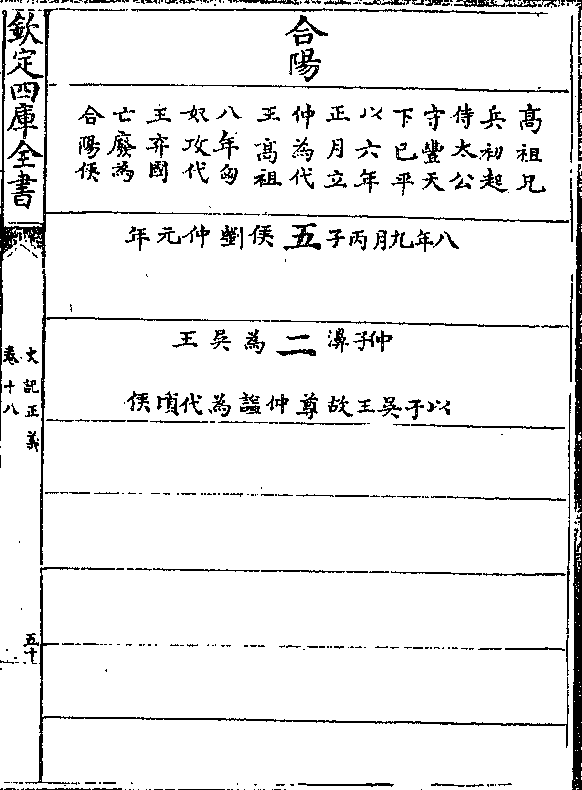 欽定四庫全書
合陽
髙祖兄
兵初起
侍太公
守豐天
下已平
以六年
正月立
仲為代
王髙祖
八年匈
奴攻代
王弃國
亡廢為
合陽侯
八年九月丙子五侯劉仲元年
仲子濞二為吳王
以子吳王故尊仲諡為代頃侯
史記正義
卷十八
五十